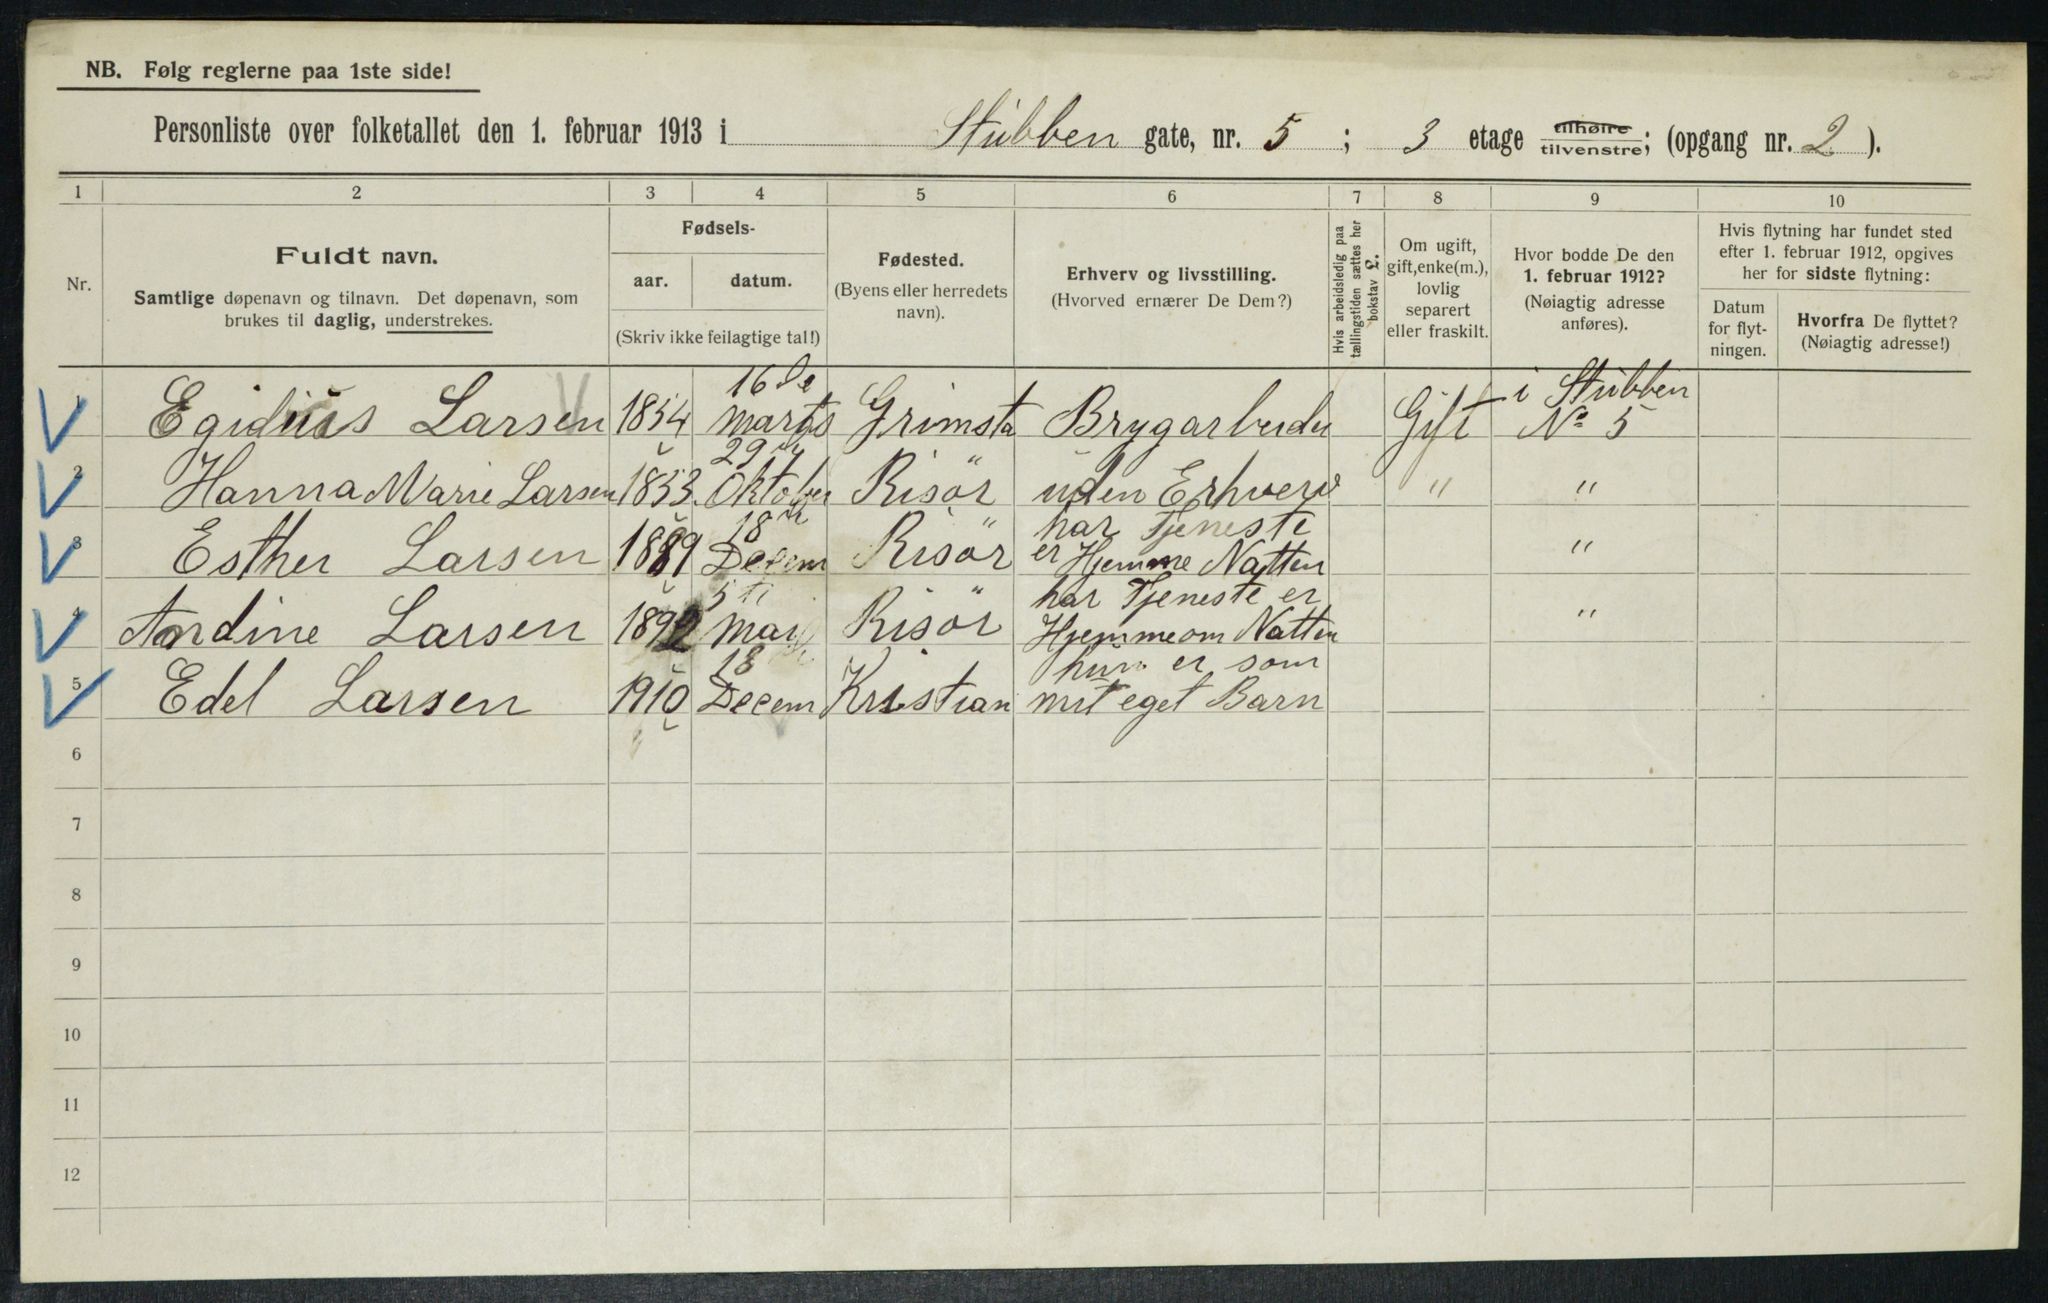 NB. Følg reglerne paa 1ste side!
Personliste over folketallet den 1. februar 1913 i Stubben gate, nr. 5 ; 3 etage tilhøire tilvenstre; (opgang nr. 2 ).
1 2 3 4 5 6 7 8 9 10
Nr.
Fuldt navn.
Samtlige døpenavn og tilnavn. Det døpenavn, som
brukes til daglig, understrekes.
Fødsels-
aar. datum.
(Skriv ikke feilagtige tal!)
Fødested.
(Byens eller herredets
navn).
Erhverv og livsstilling.
(Hvorved ernærer De Dem?)
Hvis arbeidsledig paa
tællingstiden sættes her
bokstav L.
Om ugift,
gift, enke(m.),
lovlig
separert
eller fraskilt.
Hvor bodde De den
1. februar 1912?
(Nøiagtig adresse
anføres).
Hvis flytning har fundet sted
efter 1. februar 1912, opgives
her for sidste flytning:
Datum
for flyt-
ningen.
Hvorfra De flyttet?
(Nøiagtig adresse!)
1 Egidius Larsen 1854 16de Marts Grimsta Brygarbeider Gift i Stubben No 5
2 Hanna Marie Larsen 1853 29 Oktober Risör uden Erhverv " "
3 Esther Larsen 1889 18 Decem Risör har Tjeneste er Hjemme Natten "
4 Andine Larsen 1892 5te Mai Risör har Tjeneste er Hjemme om Natten "
5 Edel Larsen 1910 18 Decem Kristian hun er som mit eget Barn
6
7
8
9
10
11
12